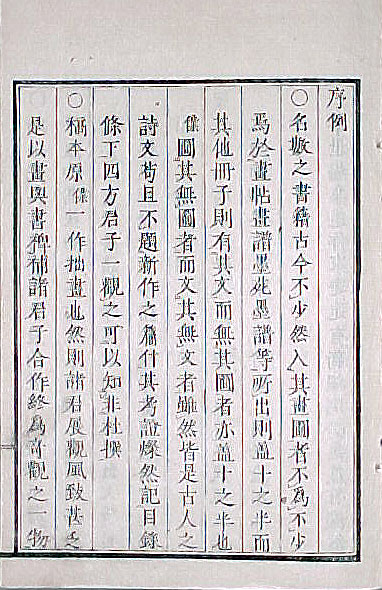 序例
○名數之書籍古今不少然入其畫圖者不為不少
焉於畫帖畫譜墨苑墨譜等所出則蓋十之半而
其他冊子則有其文而無其圖者亦蓋十之半也
僕圖其無圖者而文其無文者雖然皆是古人之
詩文苟且不題新作之篇付其考證燦然記目錄
條下四方君子一觀之可以知非杜撰
○稿本原僕一作拙畫也然則諸君展觀風致甚乏
是以畫與書裨補諸君子合作終為奇觀之一物